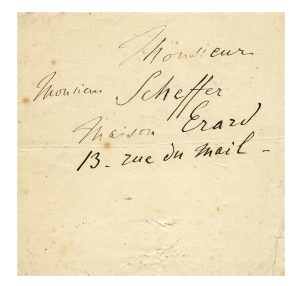 Monsieur
Monsieur Scheffer
Maison Erard
13 - rue du mail -